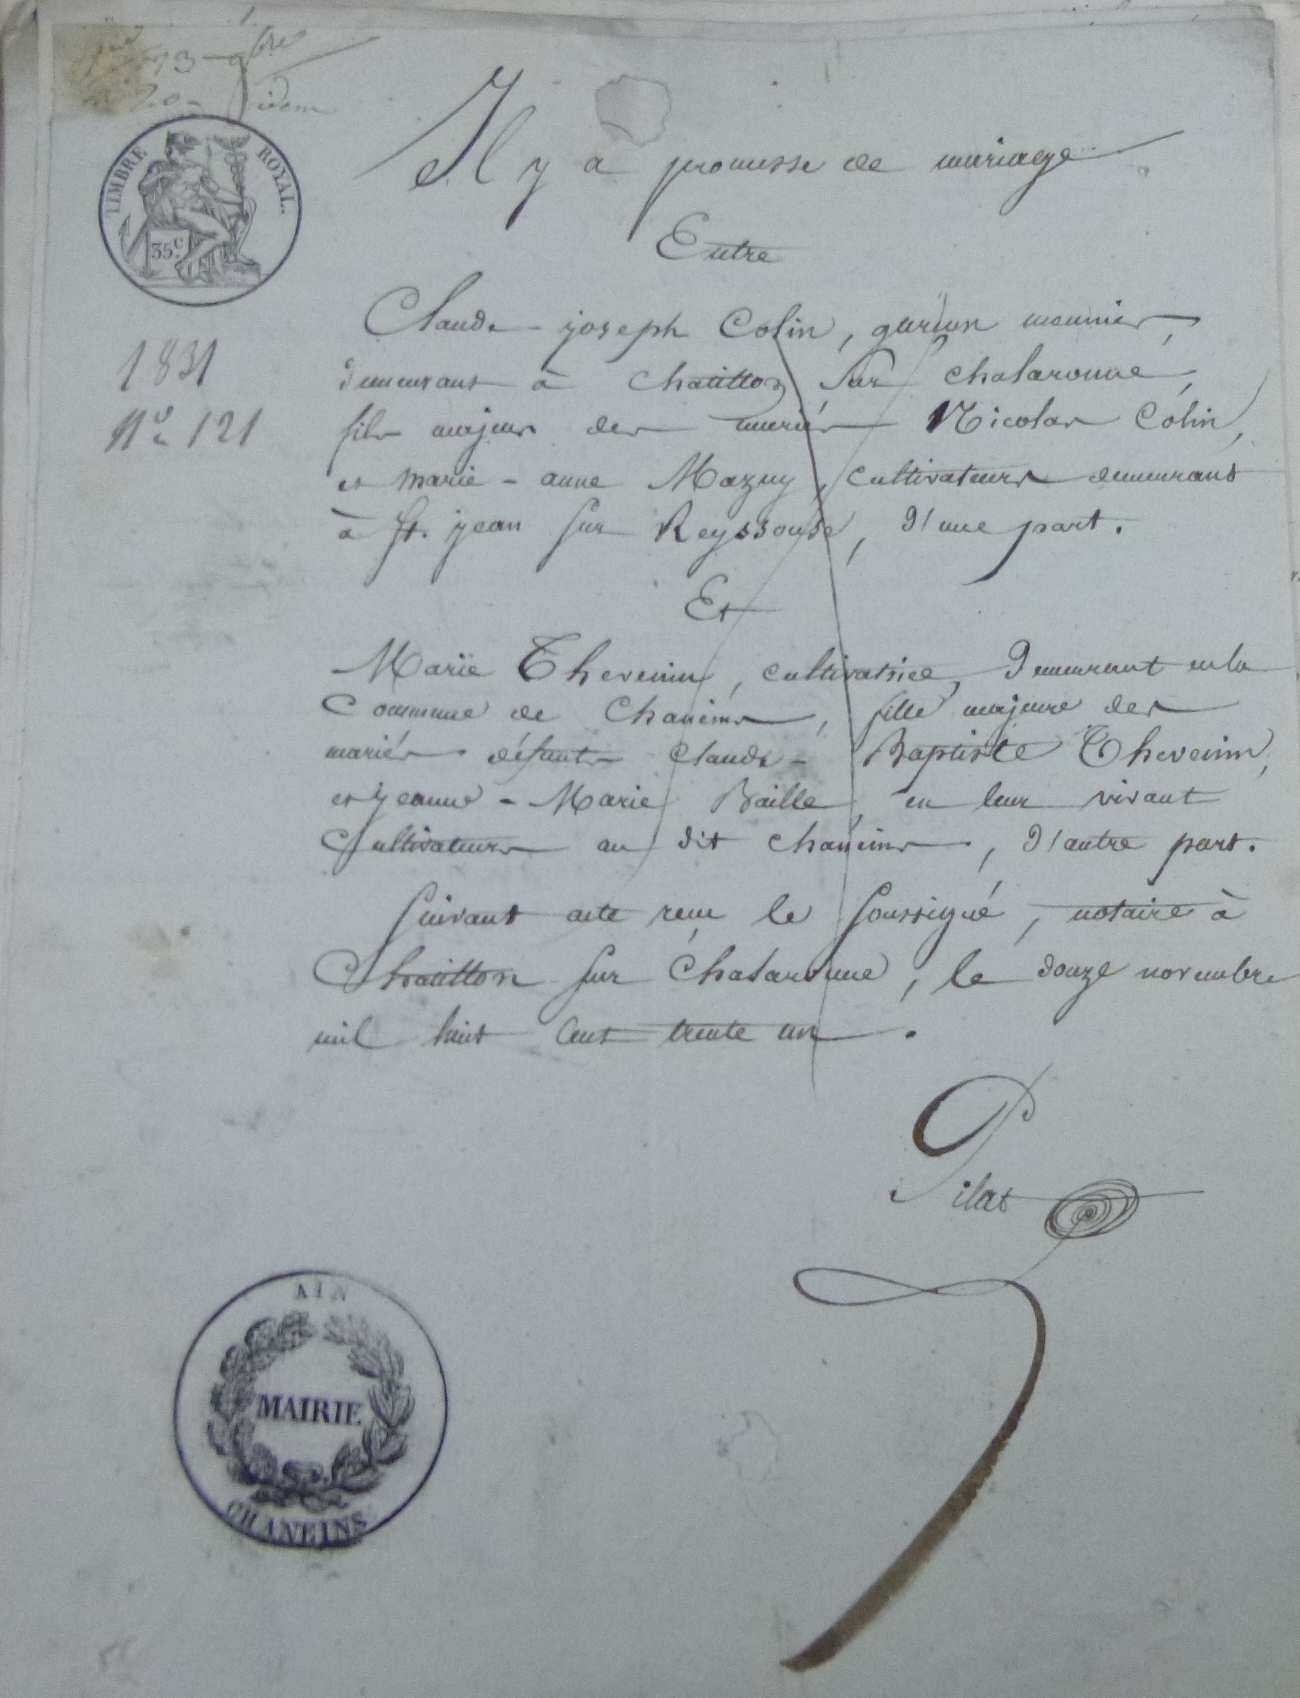 13 9bres
20 idem
TIMBRE ROYAL.
35 C.
Il y a promesse de mariage
Entre
Claude-joseph Colin, garçon meunier,
1831
demeurant à Chatillon sur chalaronne,
N° 121
fils majeur des mariés Nicolas Colin,
et marie-anne Mazuy, cultivateurs demeurant
à St. jean sur Reyssouse, d'une part.
Et
Marie Thevenin, cultivatrice, demeurant en la
Commune de Chaneins, fille majeure des
mariés défunts Claude-Baptiste Thevenin,
et jeanne-Marie Baille, en leur vivant
Cultivateurs au dit chaneins, d'autre part.
suivant acte reçu le soussigné, notaire à
Chatillon sur Chalaronne, le douze novembre
mil huit cent trente un.
Pilat
AIN
MAIRIE
CHANEINS